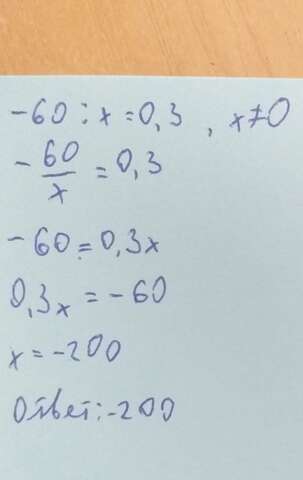 -60 : x = 0,3 , x ≠ 0
- 60/x = 0,3
-60 = 0,3x
0,3x = -60
x = -200
Ответ: -200